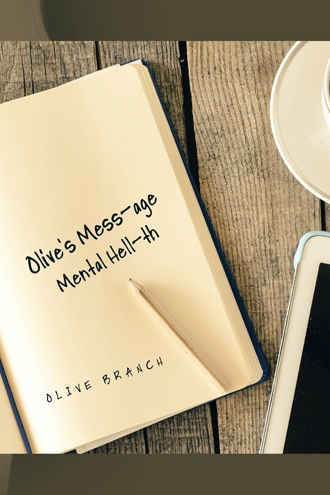 Olive's Mess-age
Mental Hell-th
OLIVE BRANCH